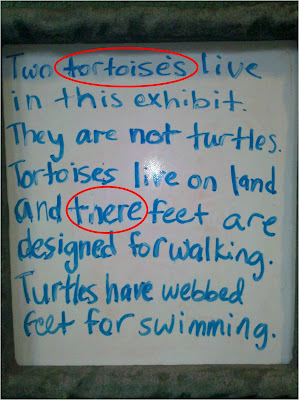 Two tortoise's live
in this exhibit.
They are not turtles.
Tortoise's live on land
and there feet are
designed for walking.
Turtles have webbed
feet for swimming.